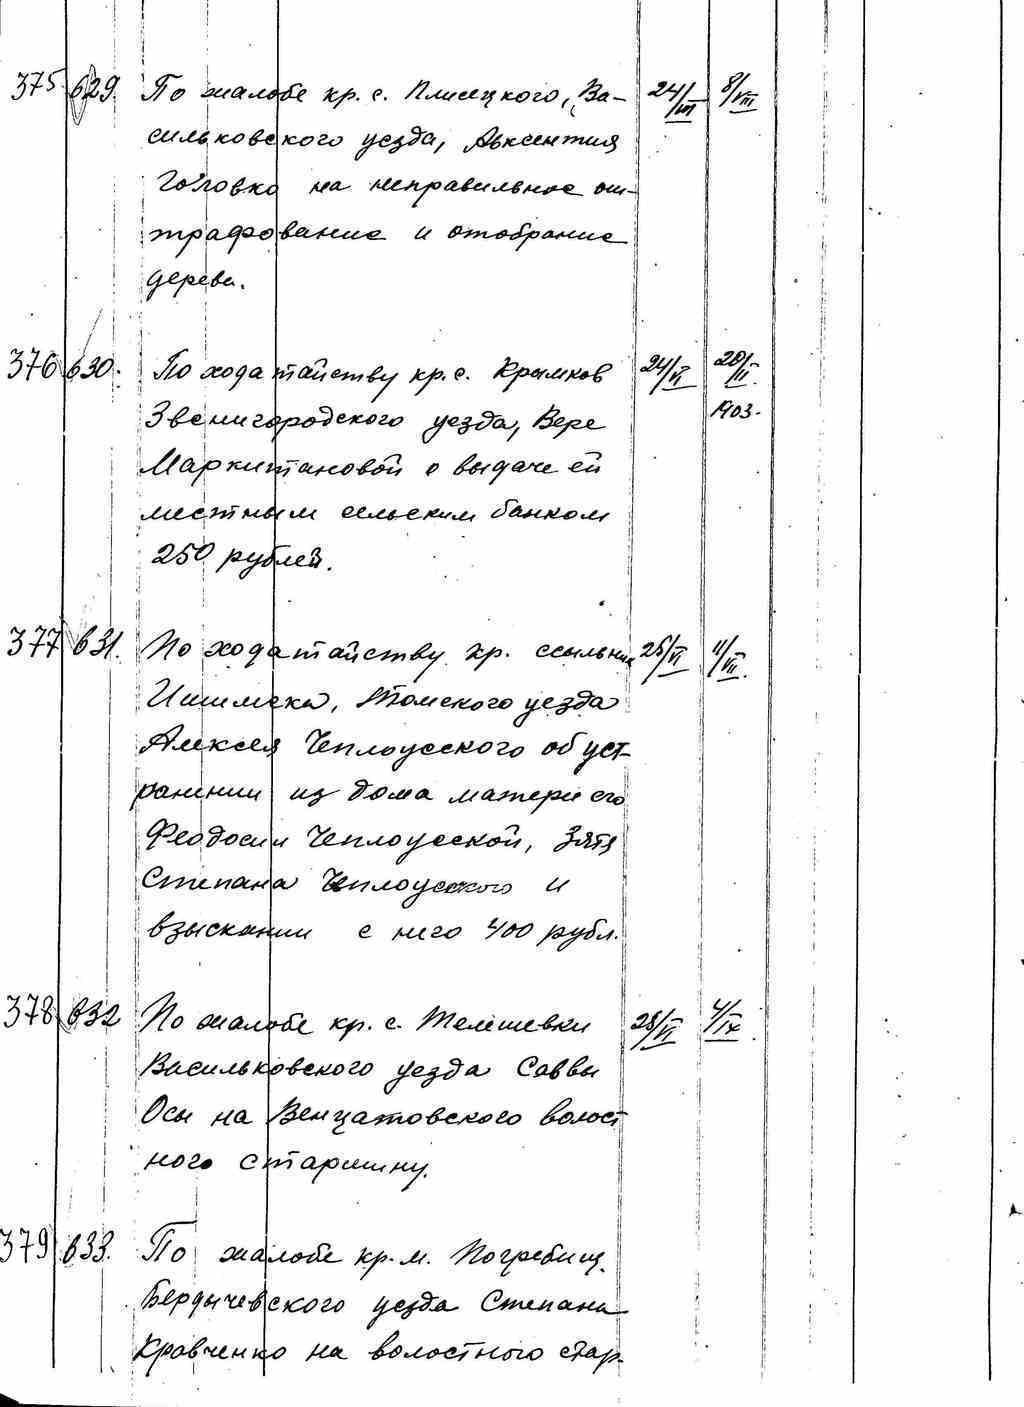 375 629. По жалобе кр. с. Плисецкого, Ва- 24/VI 8/VIII
сильковского уезда, Авксентия
Головко на неправильное ош-
трафование и отобрание
дерева.
376 630. По ходатайству кр. с. Крымков 24/VI 20/II
Звенигородского уезда, Вере 1903.
Маркитановой о выдаче ей
местным сельским банком
250 рублей.
377 631. По ходатайству кр. ссыльн 25/VI 11/VII.
Ишимска, Томского уезда
Алексея Чеплоусского об уст-
ранении из дома матери его
Феодосии Чеплоусской, зятя
Степана Чеплоусского и
взыскании с него 400 рубл.
378 632 По жалобе кр. с. Телешевки 28/VI 4/IX.
Васильковского уезда Саввы
Осы на Венцатовского волост
ного старшину.
379 633. По жалобе кр. м. Погребищ.
Бердычевского уезда Степана
Кравченко на волостного стар-